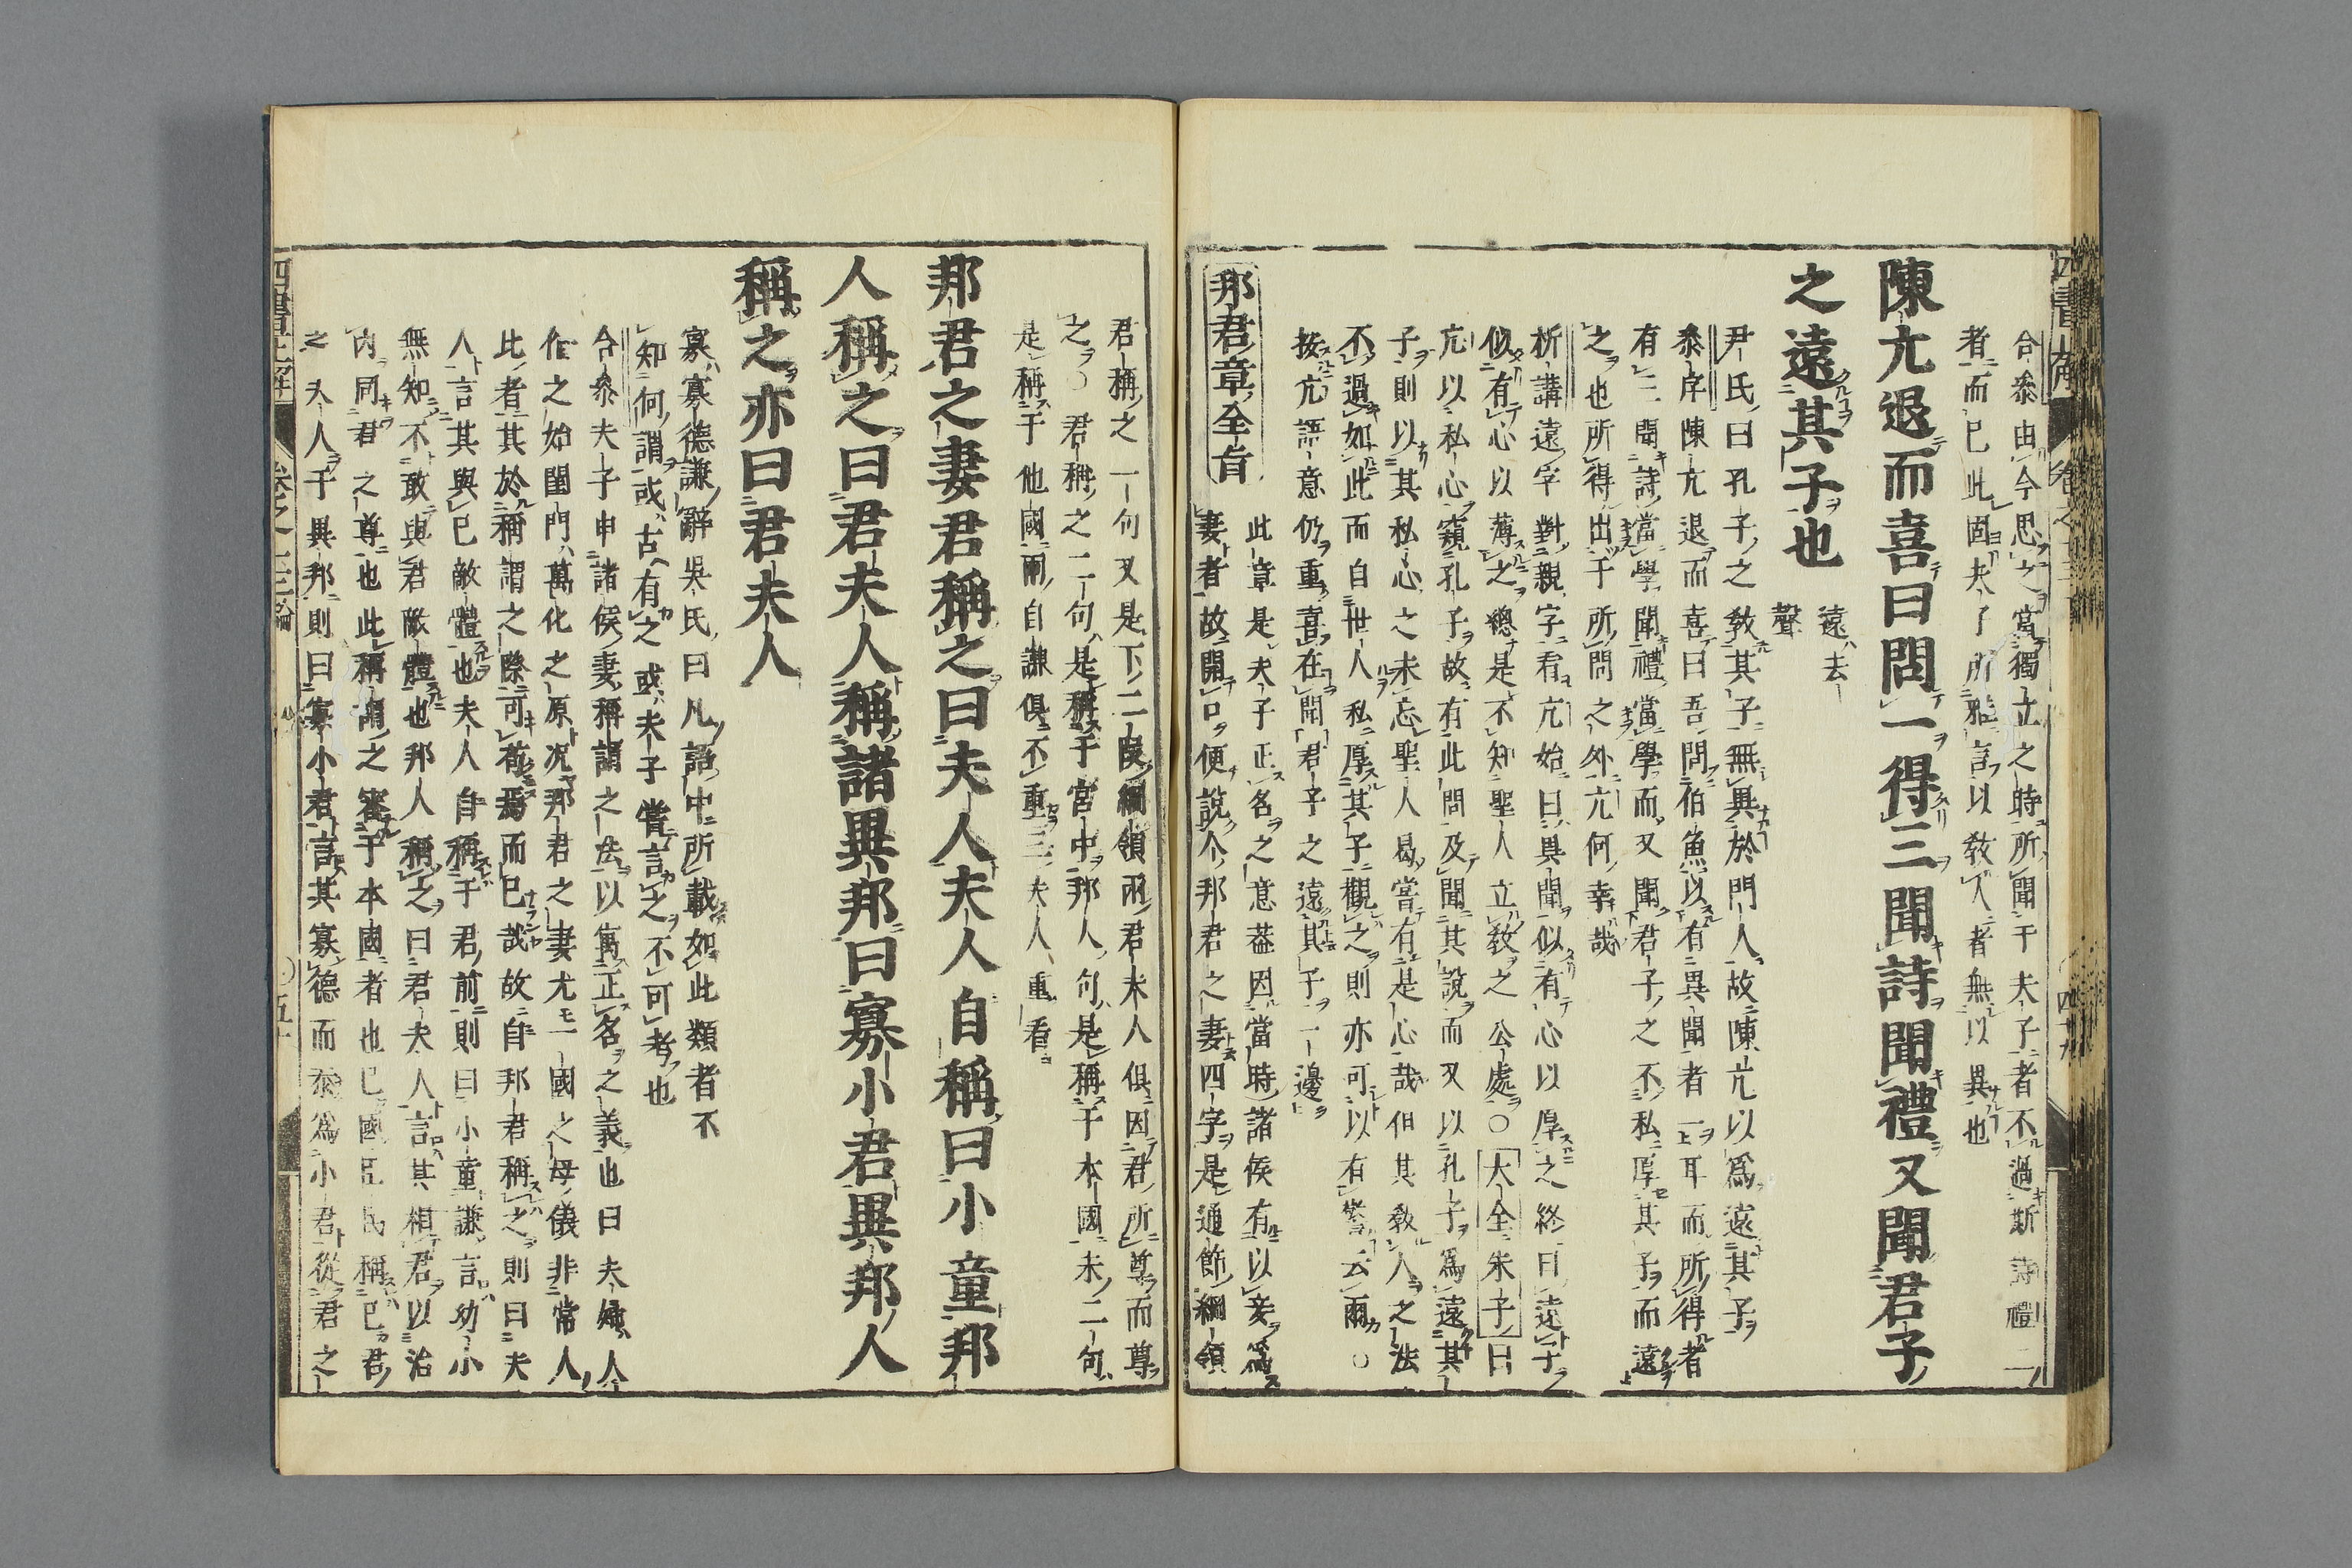 合參由今思之當獨立之時所聞于夫子者不過斯詩禮二
者而已此固夫子所雅言以敎人者無以異也
陳亢退而喜曰問一得三聞詩聞禮又聞君子
之遠其子也
遠去
聲
尹氏曰孔子之敎其子無異於門人故陳亢以爲遠其子
參序陳亢退而喜曰吾問伯魚以有異聞者一耳而所得者
有三聞詩當學聞禮當學而又聞君子之不私厚其子而遠
之也所得出于所問之外亢何幸哉
析講遠字對親字看亢始曰異聞似有心以厚之終曰遠子
似有心以薄之總是不知聖人立敎之公處○大全朱子曰
亢以私心窺孔子故有此問及聞其說而又以孔子爲遠其
子則以其私心之未忘聖人曷嘗有是心哉但其敎人之法
不過如此而自世人私厚其子觀之則亦可以有警云爾○
按亢語意仍重喜在聞君子之遠其子一邊
邦君章全旨
此章是夫子正名之意葢因當時諸侯有以妾爲
妻者故開口便說个邦君之妻四字是通節綱領
君稱之一句又是下二段綱領兩君夫人俱因君所尊而尊
之○君稱之二句是稱于宮中邦人句是稱于本國末二句
是稱于他國爾自謙俱不重三夫人重看
邦君之妻君稱之曰夫人夫人自稱曰小童邦
人稱之曰君夫人稱諸異邦曰寡小君異邦人
稱之亦曰君夫人
寡寡德謙辭吳氏曰凡語中所載如此類者不
知何謂或古有之或夫子嘗言之不可考也
合參夫子申諸侯妻稱謂之法以寓正名之義也曰夫婦人
倫之始閨門萬化之原况邦君之妻尤一國之母儀非常人
此者其於稱謂之際可苟焉而已哉故自邦君稱之則曰夫
人言其與已敵體也夫人自稱于君前則曰小童謙言幼小
無知不敢與君敵體也邦人稱之曰君夫人言其相君以治
內同君之尊也此稱謂之審于本國者也已國臣民稱已君
之夫人于異邦則曰寡小君言其寡德而忝爲小君從君之